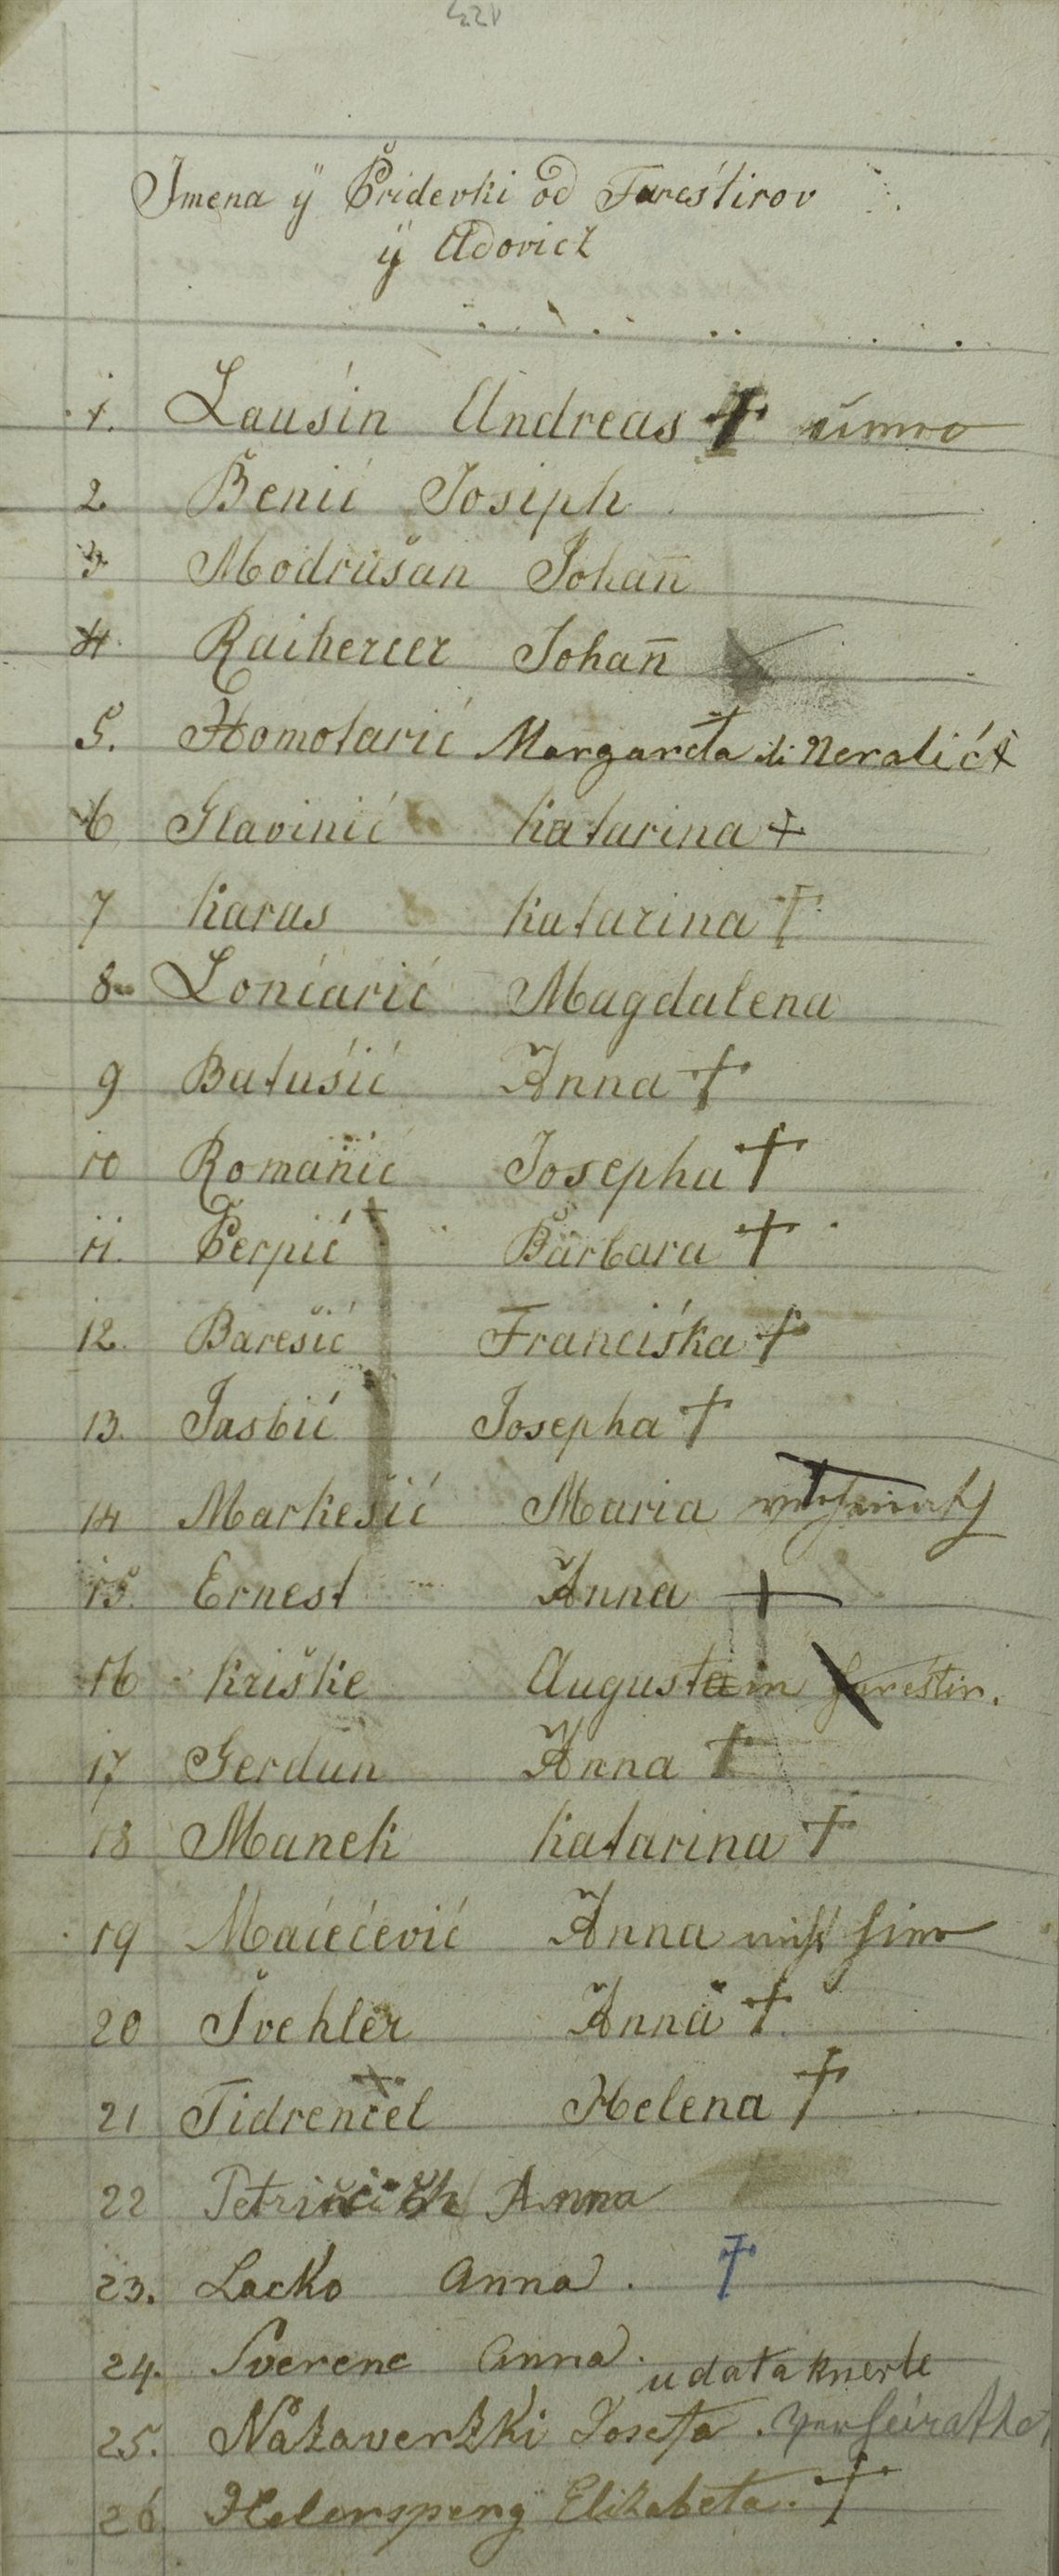 Imena ÿ Pridevki od Farestirov
ÿ Udovicz
1. Lausin Andreas † umro
2 Benić Josiph
3 Modrušan Johan̄
4 Raiherrer Johan̄
5. Homotarić Margareta di Neralić †
6 Glavinić Katarina †
7 Karas Katarina †
8 Lonćarić Magdalena
9 Batušić Anna †
10 Romanić Josepha †
11. Perpić Barbara †
12. Barešić Franciška †
13. Jasbić Josepha †
14 Markešić Maria
15. Ernest Anna †
16 Kriške Augustin farestin.
17 Gerdun Anna †
18 Manek Katarina †
19 Maćećević Anna
20 Švehler Anna †
21 Tidrenčel Helena †
22 Anna
23. Lacko Anna. †
24. Sverenc Anna.
udata knerle
25. Nazaverzki Josefa. verheirathet
26 Helersperg Elizabeta. †